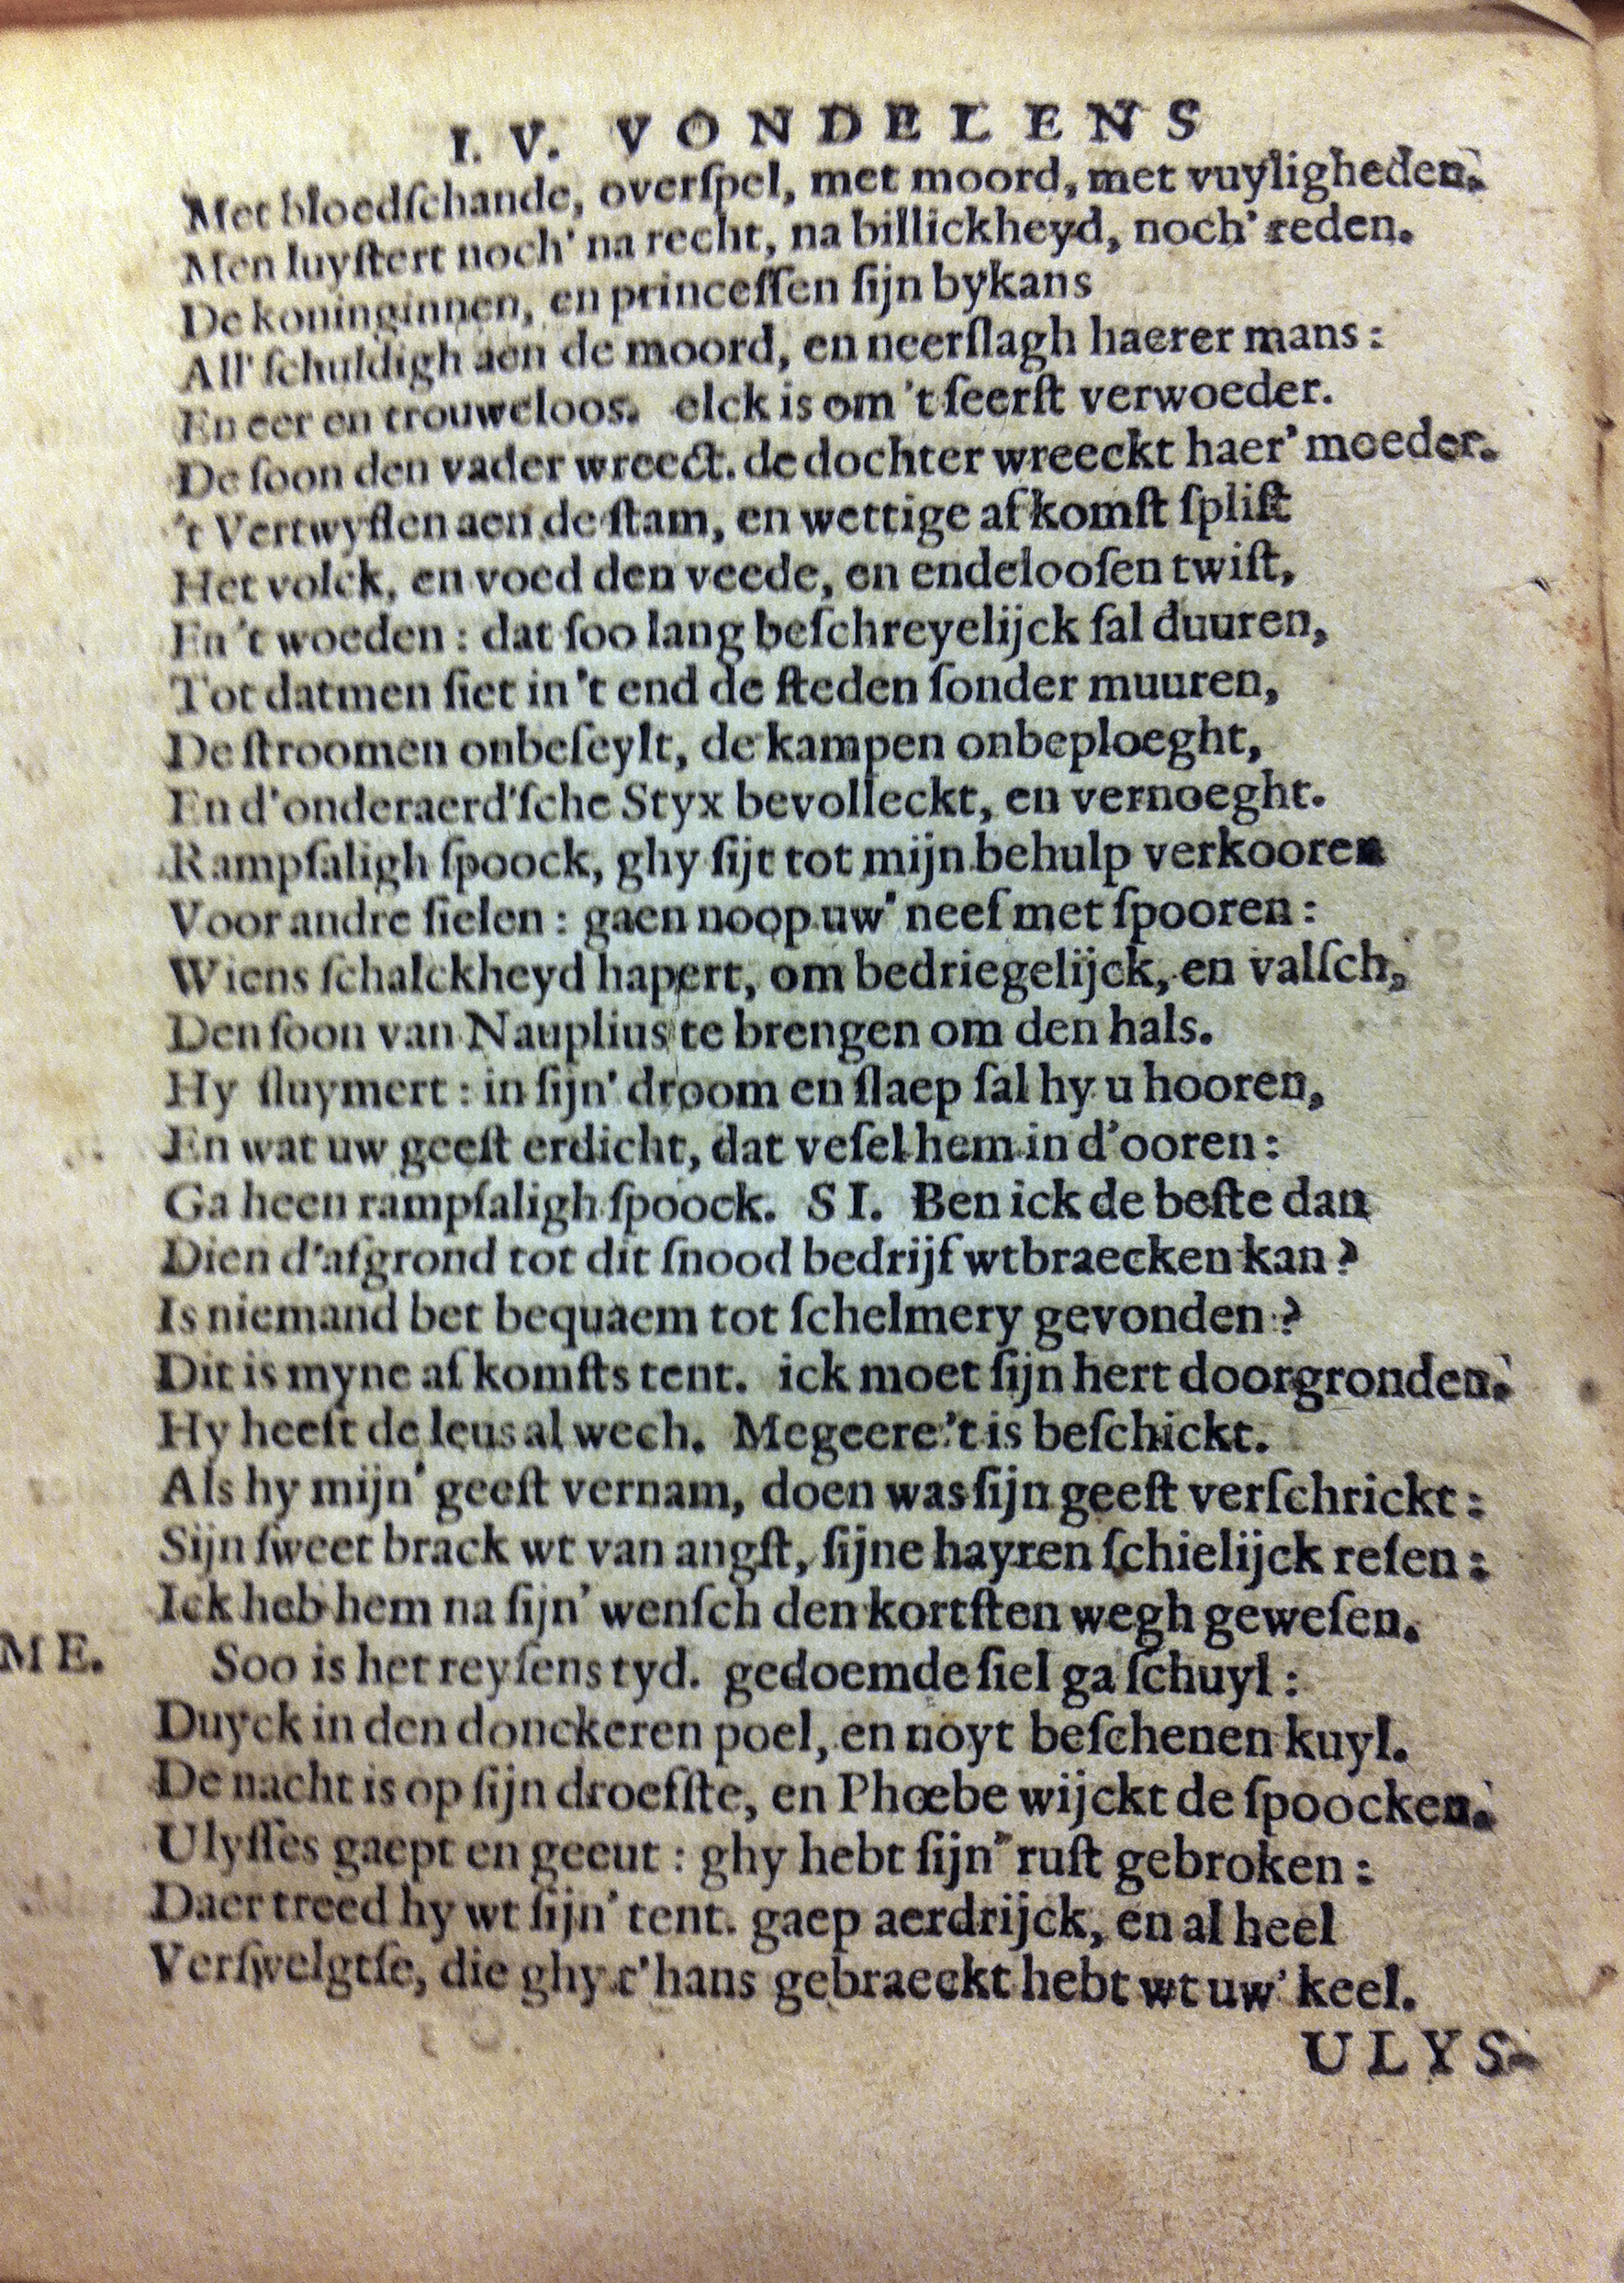 I. V. VONDELENS
Met bloedſchande, overſpel, met moord, met vuyligheden.
Men luyſtert noch' na recht, na billickheyd, noch' reden.
De koninginnen, en princeſſen ſijn bykans
All' ſchuldigh aen de moord, en neerſlagh haerer mans:
En eer en trouweloos. elck is om 't ſeerſt verwoeder.
De ſoon den vader wreect. de dochter wreeckt haer' moeder.
't Vertwyflen aen de ſtam, en wettige afkomſt ſpliſt
Het volck, en voed den veede, en endelooſen twiſt,
En 't woeden: dat ſoo lang beſchreyelijck ſal duuren,
Tot datmen ſiet in 't end de ſteden ſonder muuren,
De ſtroomen onbeſeylt, de kampen onbeploeght,
En d'onderaerd'ſche Styx bevolleckt, en vernoeght.
Rampſaligh ſpoock, ghy ſijt tot mijn behulp verkooren
Voor andre ſielen: gaen noop uw' neef met ſpooren:
Wiens ſchalckheyd hapert, om bedriegelijck, en valſch,
Den ſoon van Nauplius te brengen om den hals.
Hy ſluymert: in ſijn' droom en ſlaep ſal hy u hooren,
En wat uw geeſt erdicht, dat veſel hem in d'ooren:
Ga heen rampſaligh ſpoock. SI. Ben ick de beſte dan
Dien d'afgrond tot dit ſnood bedrijf wtbraecken kan?
Is niemand bet bequaem tot ſchelmery gevonden?
Dit is myne af komſts tent. ick moet ſijn hert doorgronden.
Hy heeft de leus al wech. Megeere 't is beſchickt.
Als hy mijn' geeſt vernam, doen was ſijn geeſt verſchrickt:
Sijn ſweet brack wt van angſt, ſijne hayren ſchielijck reſen:
Ick heb hem na ſijn' wenſch den kortſten wegh geweſen.
ME. Soo is het reyſens tyd. gedoemde ſiel ga ſchuyl:
Duyck in den donckeren poel, en noyt beſchenen kuyl.
De nacht is op ſijn droefſte, en Phœbe wijckt de ſpoocken.
Ulyſſes gaept en geeut: ghy hebt ſijn' ruſt gebroken:
Daer treed hy wt ſijn' tent. gaep aerdrijck, en al heel
Verſwelgtſe, die ghy t'hans gebraeckt hebt wt uw' keel.
ULYS-